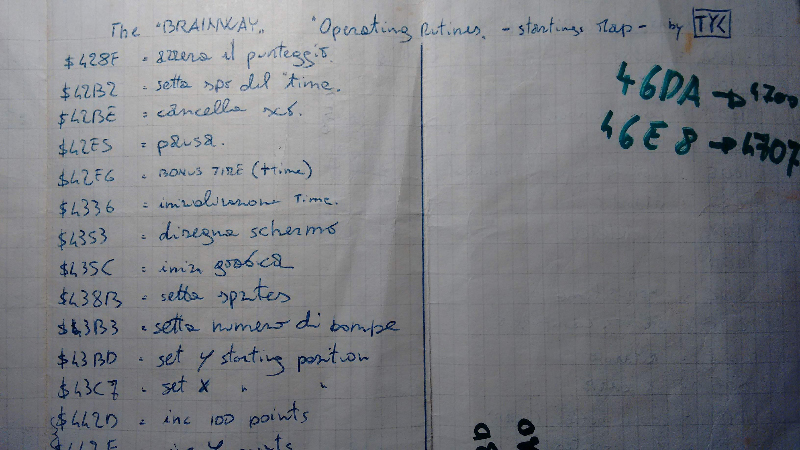 The "BRAINWAY" "Operating Rutines. - startings Map - by TYC
$428F = azzera il punteggio.
$42B2 = setta spr del "time.
$42BE = cancella scr.
$42E5 = pausa.
$42F6 = BONUS TIME (+time)
$4336 = inizializzazione Time.
$4353 = disegna schermo
$435C = iniz grafica
$438B = setta sprites
$43B3 = setta numero di bombe
$43BD = set Y starting position
$43C7 = set X " "
$442D = inc 100 points
46DA → 4700
46E8 → 4707